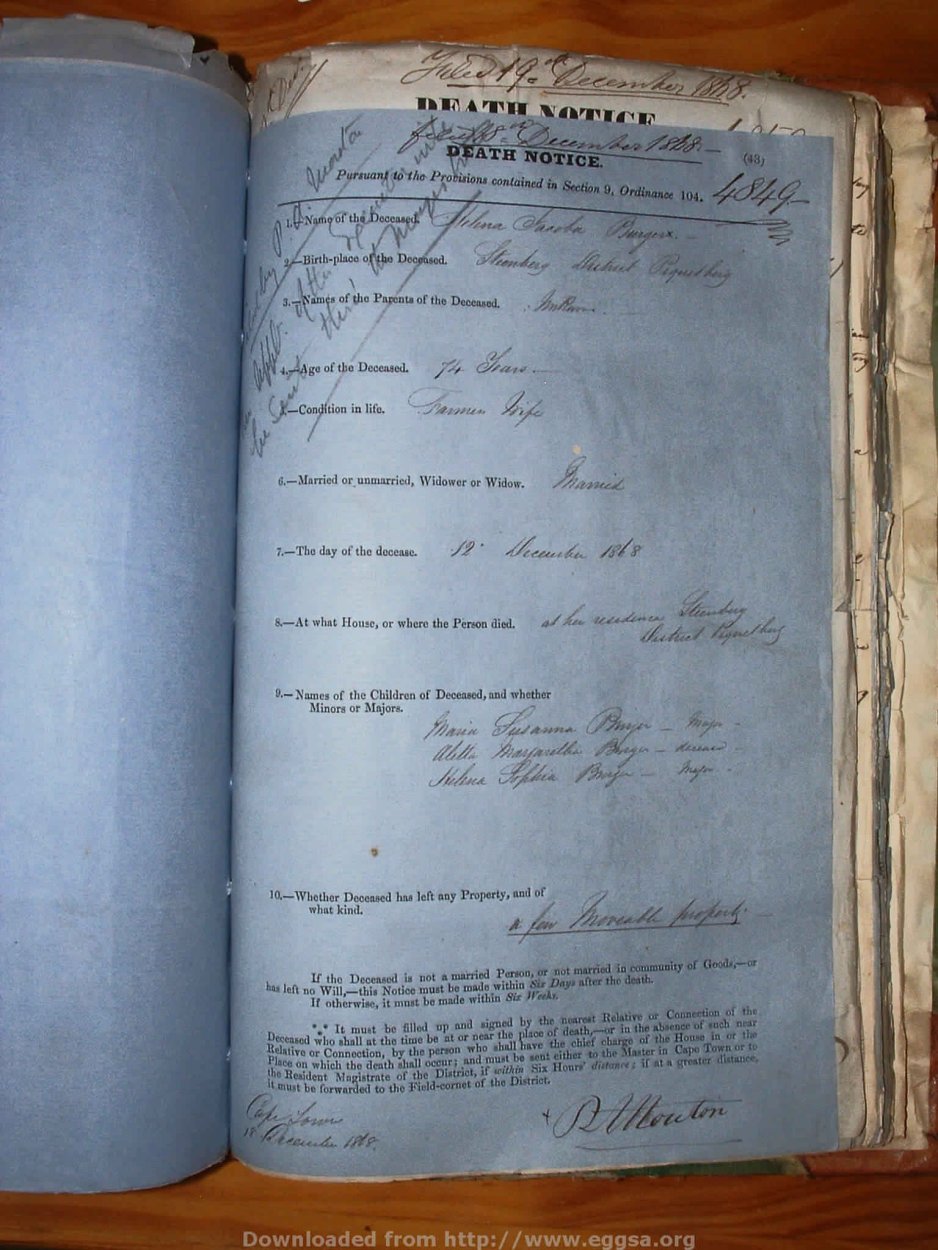 Filed 19th December 1868.
DEATH NOTICE
filed 18th December 1868
DEATH NOTICE.
(43)
Pursuant to the Provisions contained in Section 9, Ordinance 104.
4849
1.—Name of the Deceased. Helena Jacoba Burger.
2.—Birth-place of the Deceased. Steenberg District Piquetberg
3.—Names of the Parents of the Deceased.
4.—Age of the Deceased. 74 Years
5.—Condition in life. Farmer Wife
6.—Married or unmarried, Widower or Widow. Married
7.—The day of the decease. 12 December 1868
8.—At what House, or where the Person died. at her residence Steenberg
District Piquetberg
9.—Names of the Children of Deceased, and whether
Minors or Majors.
Maria Susanna Burger — Major
Aletta Margaretha Burger — deceased
Helena Sophia Burger — Major
10.—Whether Deceased has left any Property, and of
what kind.
a few Moveable property.
If the Deceased is not a married Person, or not married in community of Goods,—or
has left no Will,—this Notice must be made within Six Days after the death.
If otherwise, it must be made within Six Weeks.
*** It must be filled up and signed by the nearest Relative or Connection of the
Deceased who shall at the time be at or near the place of death,—or in the absence of such near
Relative or Connection, by the person who shall have the chief charge of the House in or the
Place on which the death shall occur; and must be sent either to the Master in Cape Town or to
the Resident Magistrate of the District, if within Six Hours' distance; if at a greater distance,
it must be forwarded to the Field-cornet of the District.
Cape Town
18 December 1868.
Mouton
Downloaded from http://www.eggsa.org